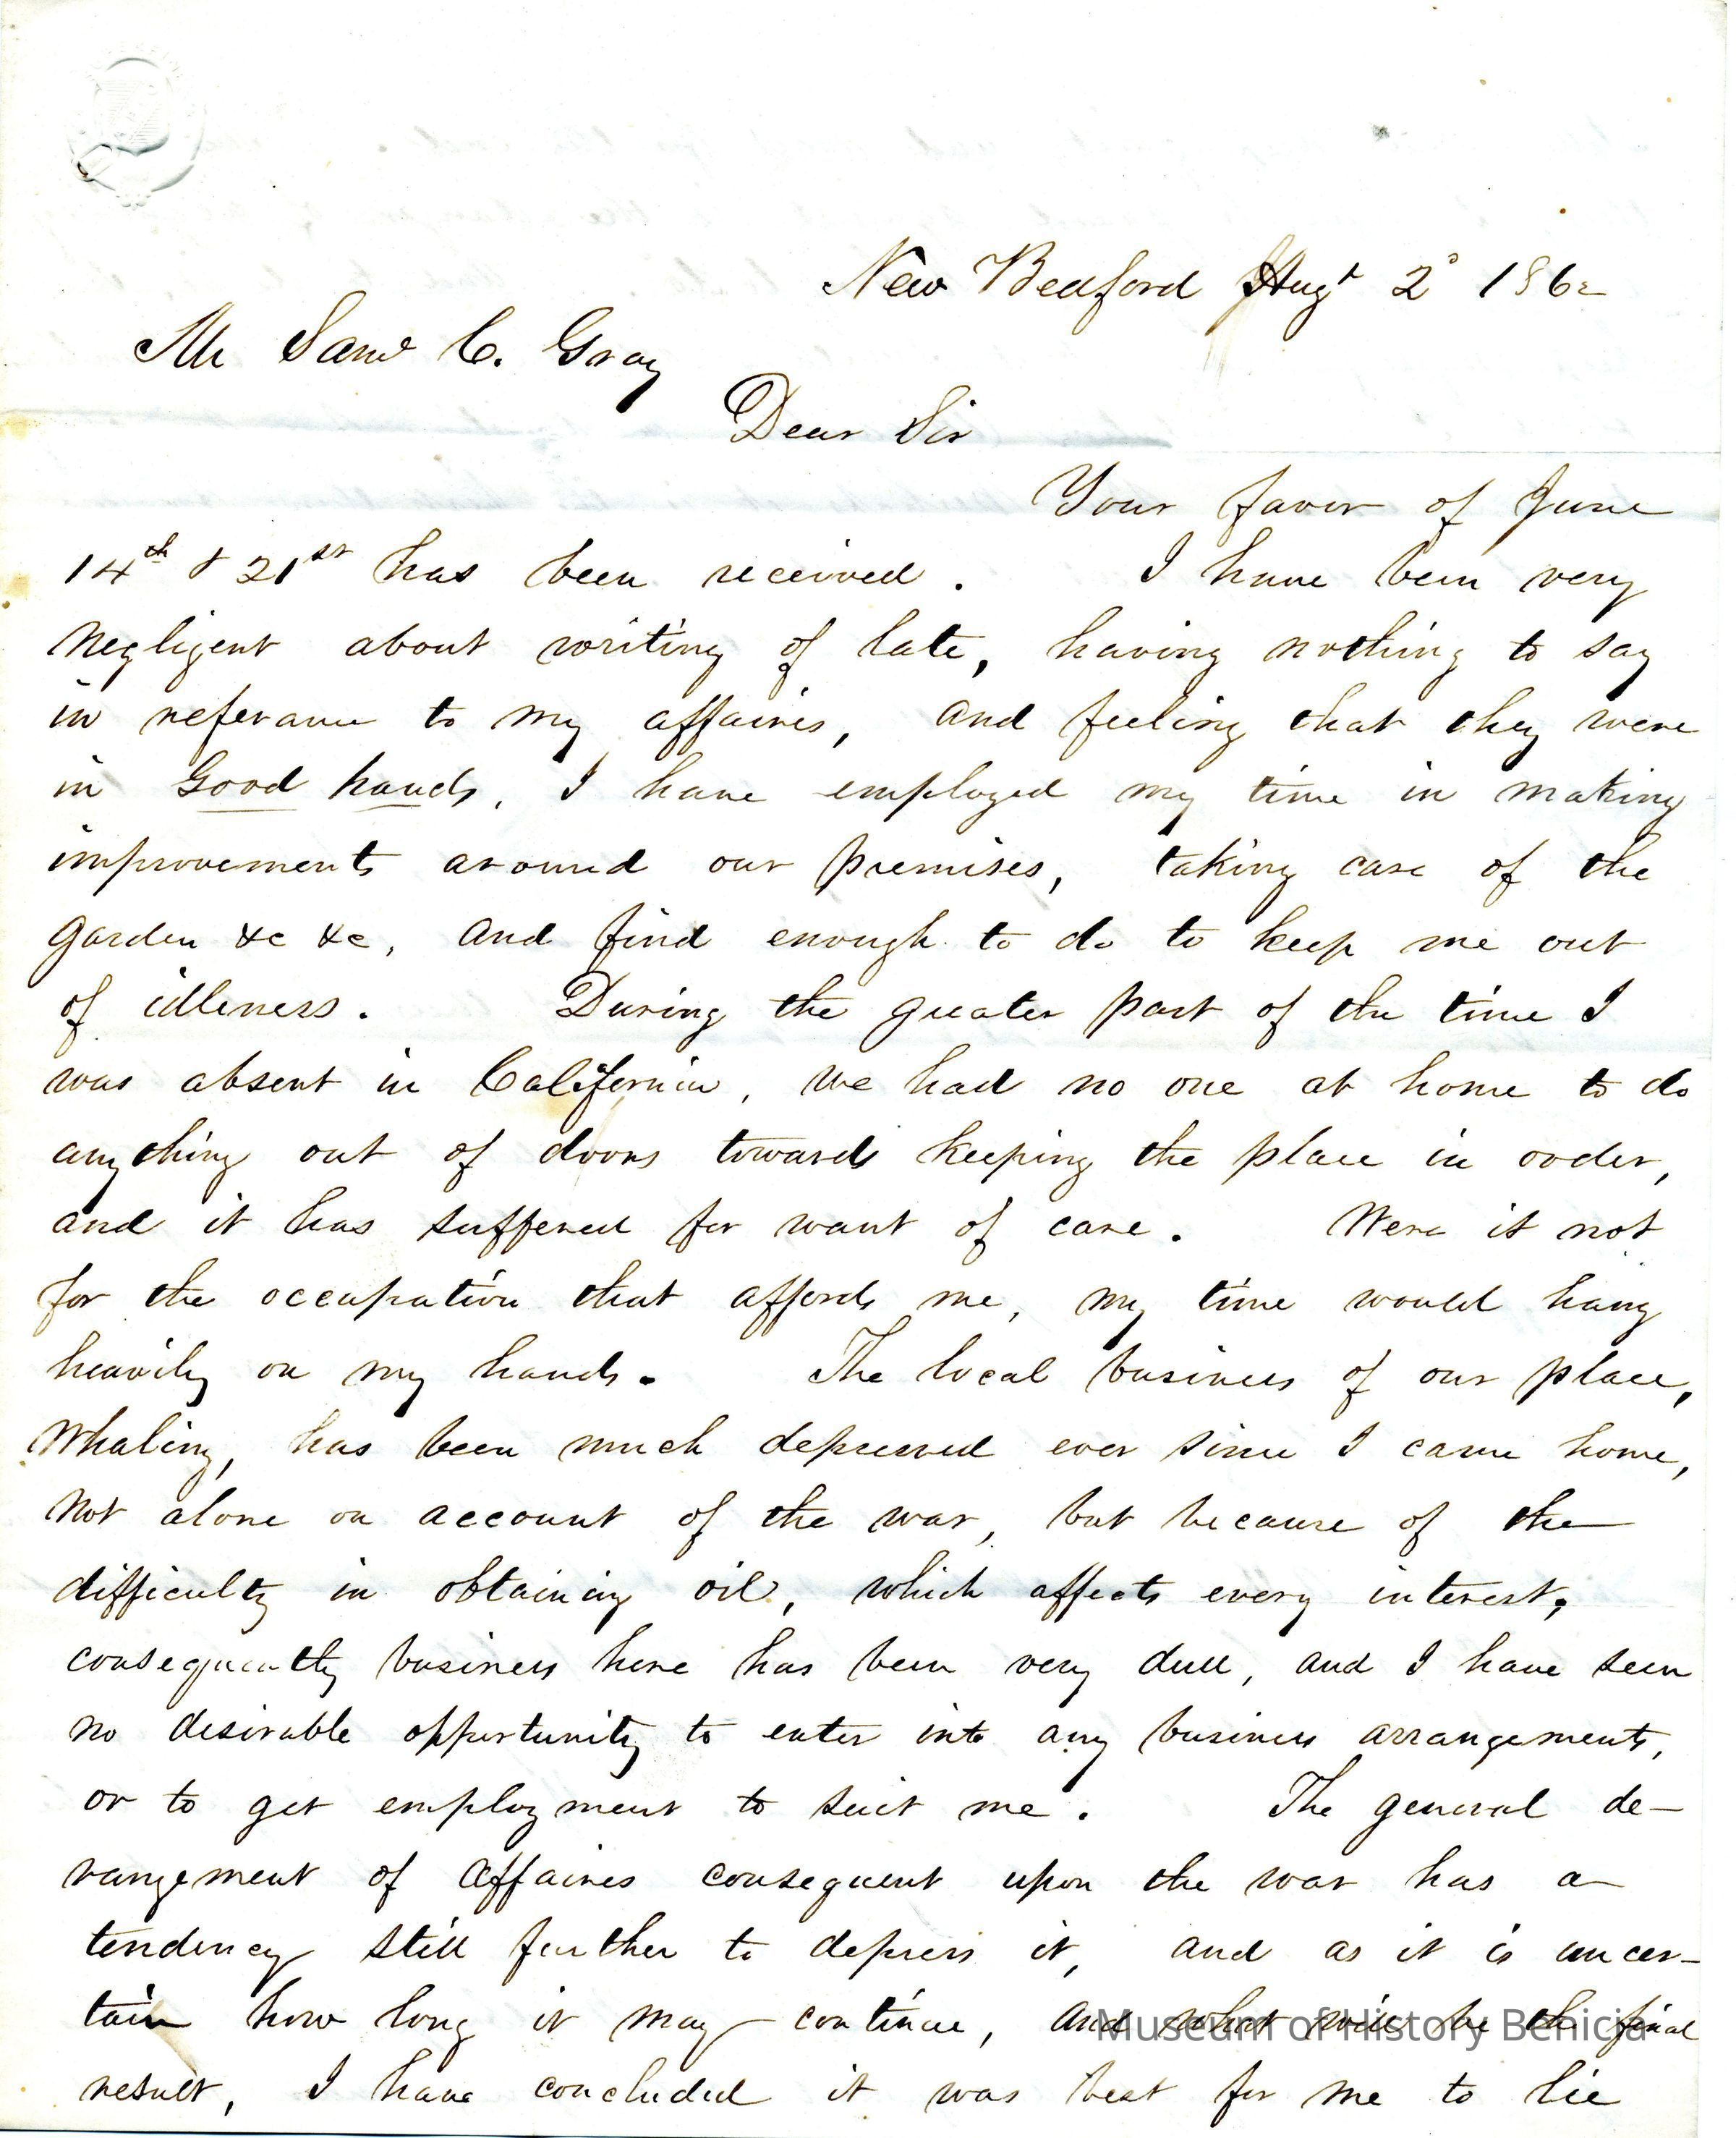 New Bedford Augt 2d 1862
Mr Saml C. Gray
Dear Sir
Your favor of June
14th & 21st has been received. I have been very
negligent about writing of late, having nothing to say
in referance to my affaires, and feeling that they were
in good hands. I have employed my time in making
improvements around our premises, taking care of the
garden &c &c, and find enough to do to keep me out
of idleness. During the greater part of the time I
was absent in California, we had no one at home to do
any thing out of doors towards keeping the place in order,
and it has suffered for want of care. Were it not
for the occupation that affords me, my time would hang
heavily on my hands. The local business of our place,
Whaling, has been much depressed ever since I came home,
not alone on account of the war, but because of the
difficulty in obtaining oil, which affects every interest,
consequently business here has been very dull, and I have seen
no desirable opportunity to enter into any business arrangements,
or to get employment to suit me. The general de-
rangement of affaires consequent upon the war has a
tendency still further to depress it, and as it is uncer-
tain how long it may continue, and what will be the final
result, I have concluded it was best for me to lie
Museum of History Benicia